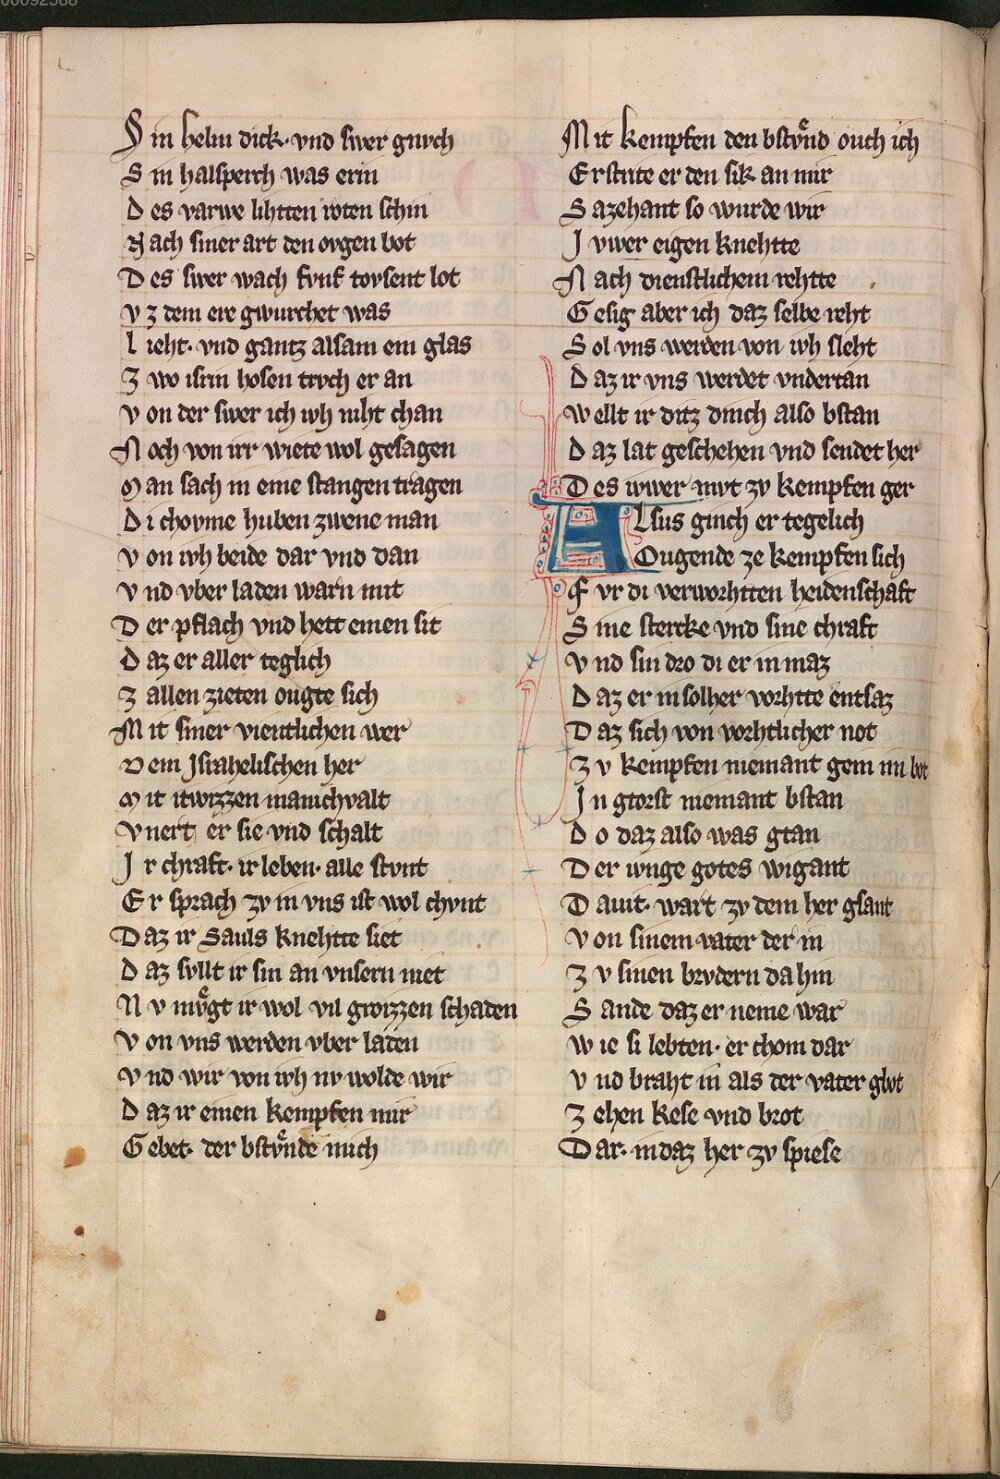 00092588
Sin helm dick· vnd swer gnvch
Sin halsperch was erin
Des varwe lihtten roten schin
Nach siner art den ovgen bot
Des swer wach fvnf tovsent lot
Vz dem ere gwurchet was
Lieht· vnd gantz alsam ein glas
Zwo isrin hosen trvch er an
Von der swer ich ivh niht chan
Noch von irr wiete wol gesagen
Man sach in eine stangen tragen
Di chovme huben zwene man
Von ivh beide dar vnd dan
Vnd vber laden warn mit
Der pflach vnd hett einen sit
Daz er aller teglich
Z allen zieten ougte sich
Mit siner vientlichen wer
Dem Jsrahelischen her
Mit itwizzen manichvalt
Vnert er sie vnd schalt
Jr chraft· ir leben· alle stvnt
Er sprach zv in vns ist wol chvnt
Daz ir Sauls knehtte siet
Daz svllt ir sin an vnsern niet
Nv mvͤgt ir wol vil groizzen schaden
Von vns werden vber laden
Vnd wir von ivh nv wolde wir
Daz ir einen kempfen mir
Gebet· der bstvͤnde mich
Mit kempfen den bstvͤnd ouch ich
Erstrite er den sik an mir
Sazehant so wurde wir
Jvwer eigen knehtte
Nach dienstlichem rehtte
Gesig aber ich daz selbe reht
Sol vns werden von ivh sleht
Daz ir vns werdet vndertan
Wellt ir ditz dinch also bstan
Daz lat geschehen vnd sendet her
Des iwer mvt zv kempfen ger
Alsus ginch er tegelich
Ougende ze kempfen sich
Fvr di verworhtten heidenschaft
Sine stercke vnd sine chraft
Vnd sin dro di er in maz
Daz er in solher vorhtte entsaz
Daz sich von vorhtlicher not
Zv kempfen niemant gein im bot
Jn gtorst niemant bstan
Do daz also was gtan
Der ivnge gotes wigant
Dauit· wart zv dem her gsant
Von sinem vater der in
Zv sinen brvdern da hin
Sande daz er neme war
Wie si lebten· er chom dar
Vnd braht in als der vater gbot
Zehen kese vnd brot
Dar· in daz her zv spiese